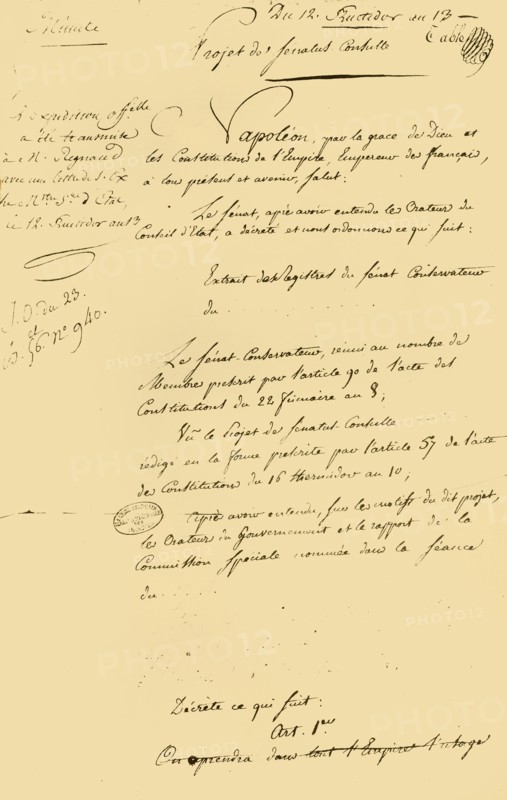 Minute
Du 12. Fructidor an 13
Table
Projet de Senatus Consulte
L'expédition offelle
a été transmise
à M. Regnaud
avec une lettre de S. Ex
le 12. Fructidor an 13
Napoléon, par la grace de Dieu et
les Constitutions de l'Empire, Empereur des français,
à tous présens et avenir, Salut:
Le Sénat, après avoir entendu les Orateurs du
Conseil d'Etat, a décrété et nous ordonnons ce qui suit:
Extrait des Registres du Sénat Conservateur
du
J. O. du 23.
B. 56. N° 940.
Le Sénat-Conservateur, réuni au nombre de
Membres prescrit par l'article 90 de l'acte des
Constitutions du 22 frimaire an 8;
Vu le Projet de Senatus-Consulte
rédigé en la forme prescrite par l'article 57 de l'acte
des Constitutions du 16 thermidor an 10;
Après avoir entendu, sur les motifs du dit projet,
les Orateurs du Gouvernement et le rapport de la
Commission Spéciale nommée dans la séance
du
Décrète ce qui suit:
Art. 1er
On reprendra dans tout l'Empire l'usage
PHOTO12